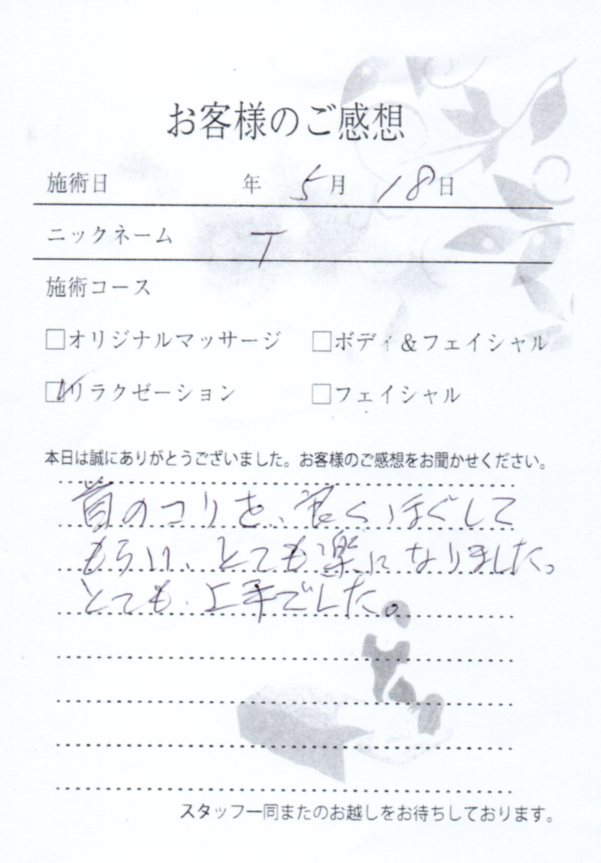 お客様のご感想
施術日 年 5月 18日
ニックネーム T
施術コース
□オリジナルマッサージ □ボディ&フェイシャル
☑リラクゼーション □フェイシャル
本日は誠にありがとうございました。お客様のご感想をお聞かせください。
首のコリを、良くほぐして
もらい、とても楽になりました。
とても、上手でした。
スタッフ一同またのお越しをお待ちしております。